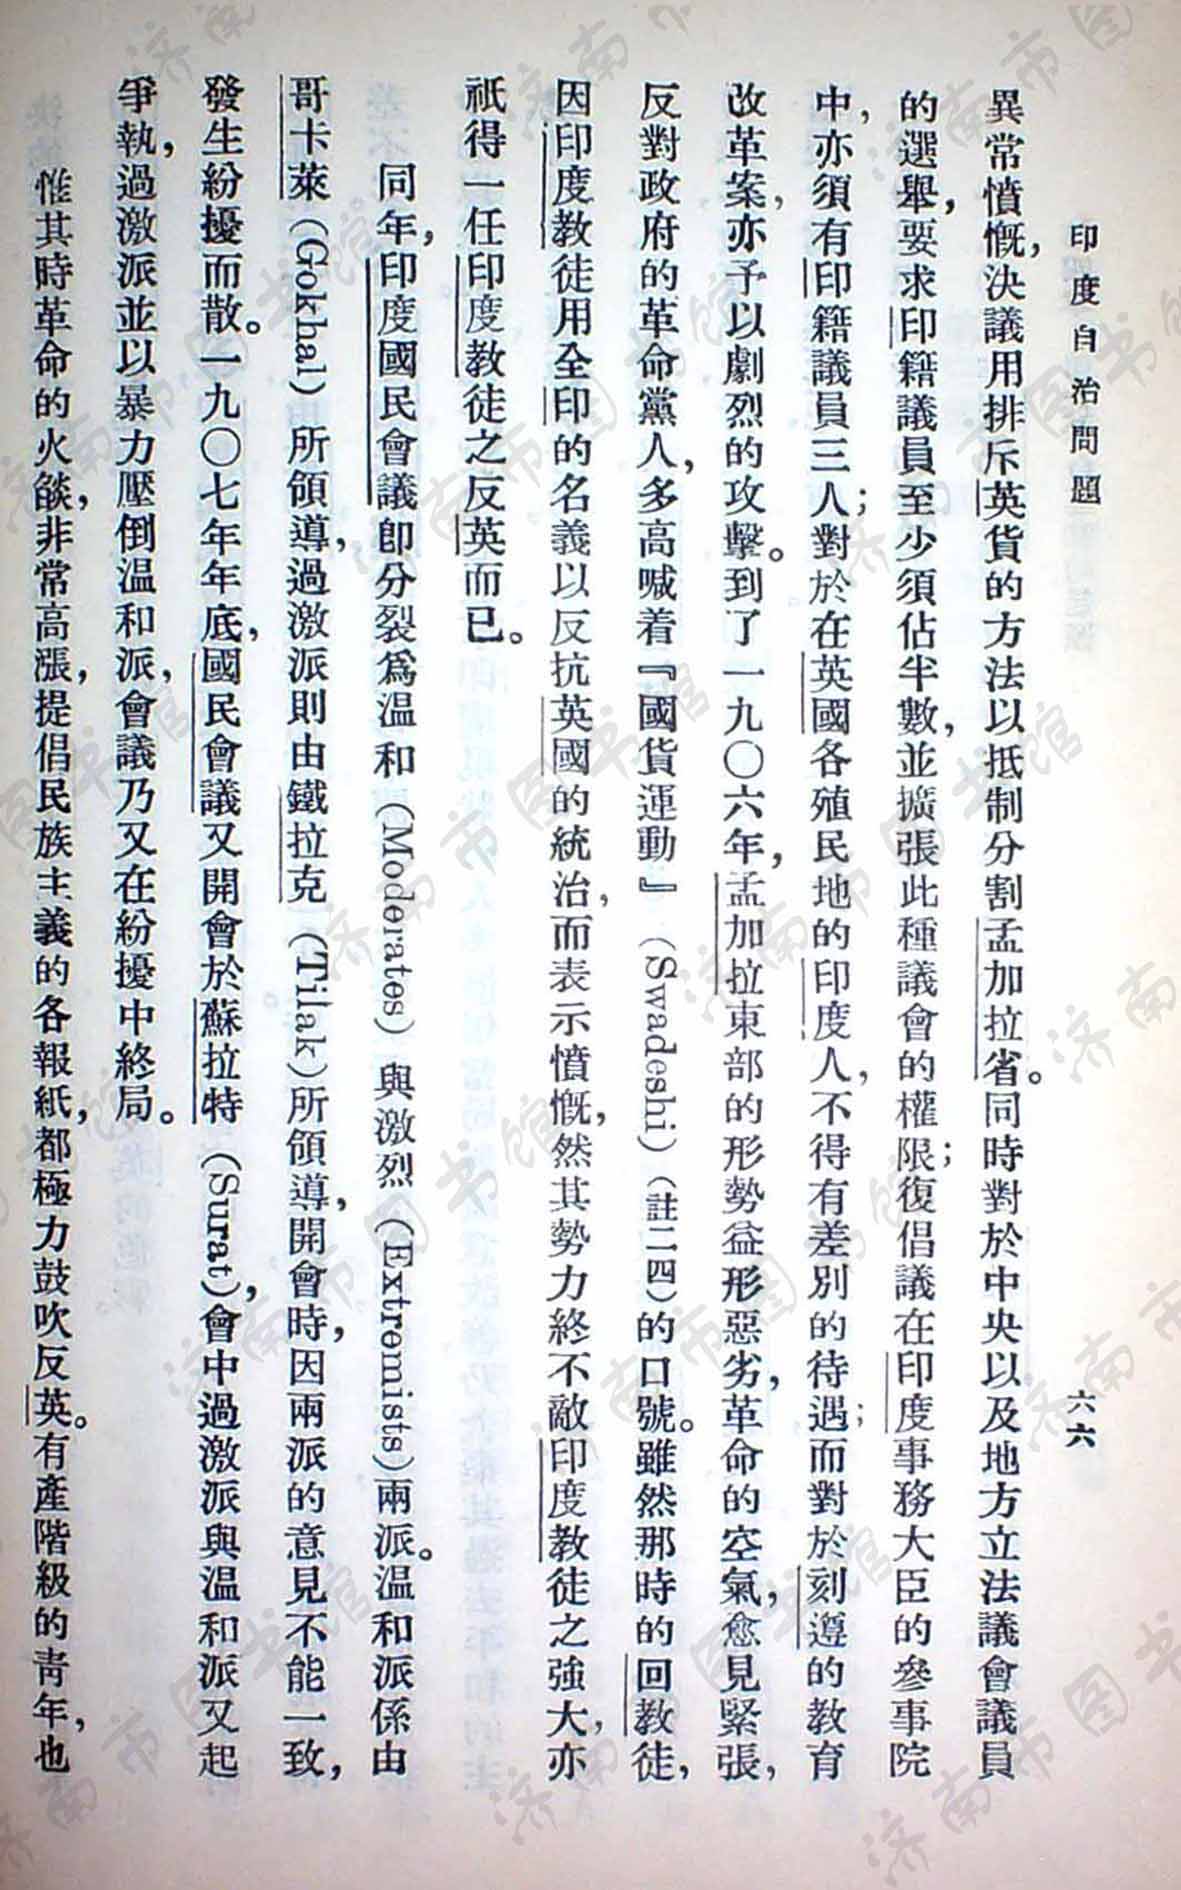 印度自治問題
六六
異常憤慨，決議用排斥英貨的方法以抵制分割孟加拉省。同時對於中央以及地方立法議會議員
的選舉，要求印籍議員至少須佔半數，並擴張此種議會的權限；復倡議在印度事務大臣的參事院
中，亦須有印籍議員三人；對於在英國各殖民地的印度人，不得有差別的待遇；而對於刻遵的教育
改革案，亦予以劇烈的攻擊。到了一九〇六年，孟加拉東部的形勢益形惡劣，革命的空氣，愈見緊張，
反對政府的革命黨人，多高喊着『國貨運動』（Swadeshi）（註二四）的口號。雖然那時的回教徒，
因印度教徒用全印的名義以反抗英國的統治，而表示憤慨，然其勢力終不敵印度教徒之強大，亦
祇得一任印度教徒之反英而已。
同年，印度國民會議卽分裂爲溫和（Moderates）與激烈（Extremists）兩派。溫和派係由
哥卡萊（Gokhal）所領導，過激派則由鐵拉克（Tilak）所領導，開會時，因兩派的意見不能一致，
發生紛擾而散。一九〇七年年底，國民會議又開會於蘇拉特（Surat），會中過激派與溫和派又起
爭執，過激派並以暴力壓倒溫和派，會議乃又在紛擾中終局。
惟其時革命的火燄，非常高漲，提倡民族主義的各報紙，都極力鼓吹反英。有產階級的靑年，也
济南市图书馆